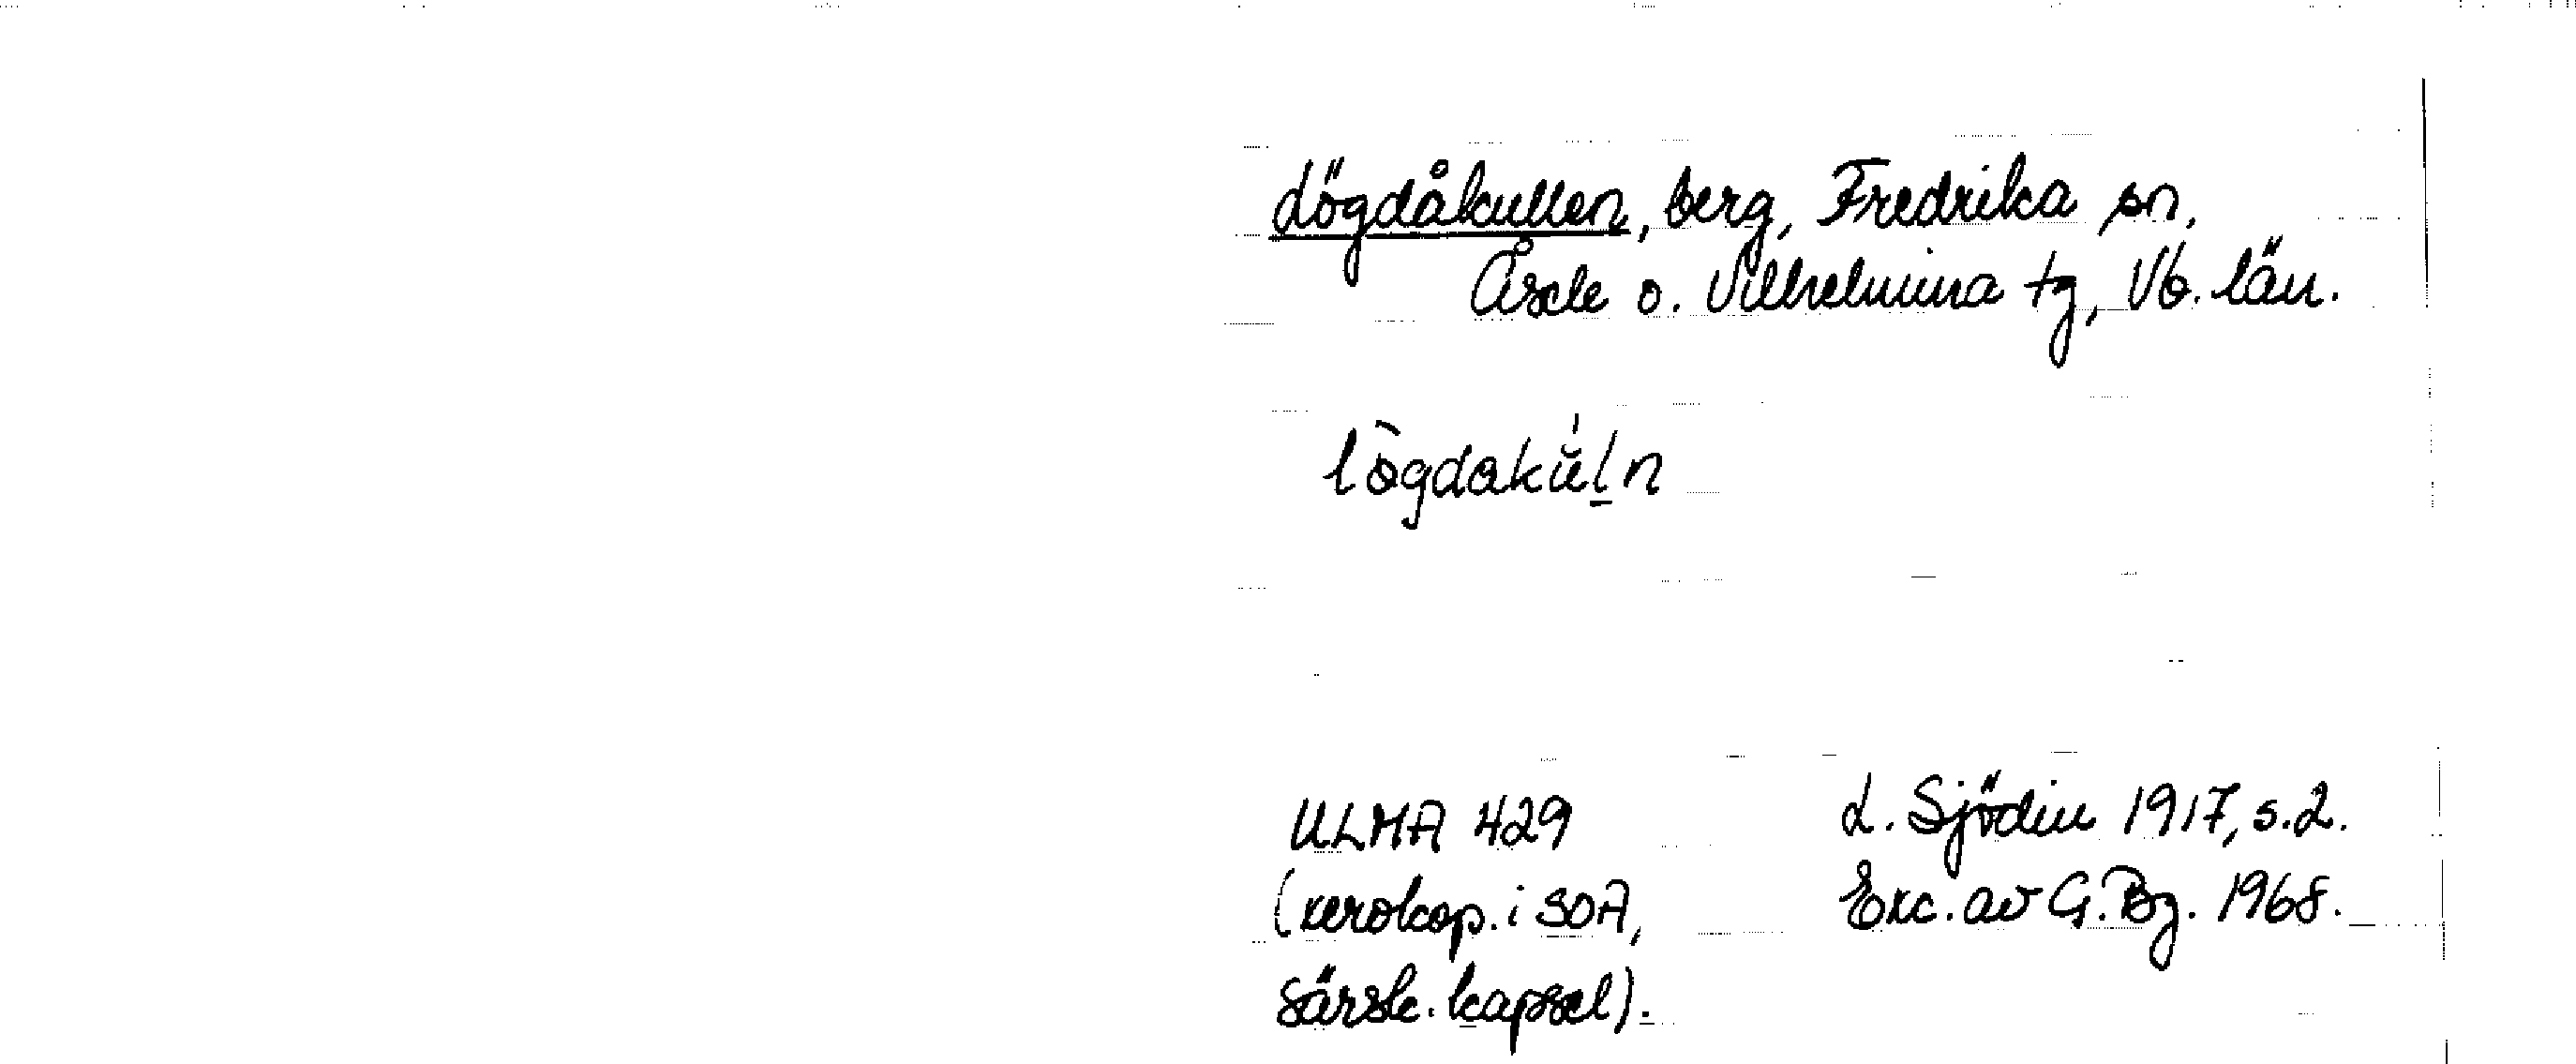 Lögdåkullen, berg, Fredrika sn,
Åsele o. Vilhelmina tg, Vb. län.
lögdakŭln
ULMA 429
(xerokop. i SOA,
särsk. kapsel).
L. Sjödin 1917, s.2.
Exc. av G. Bg. 1968.